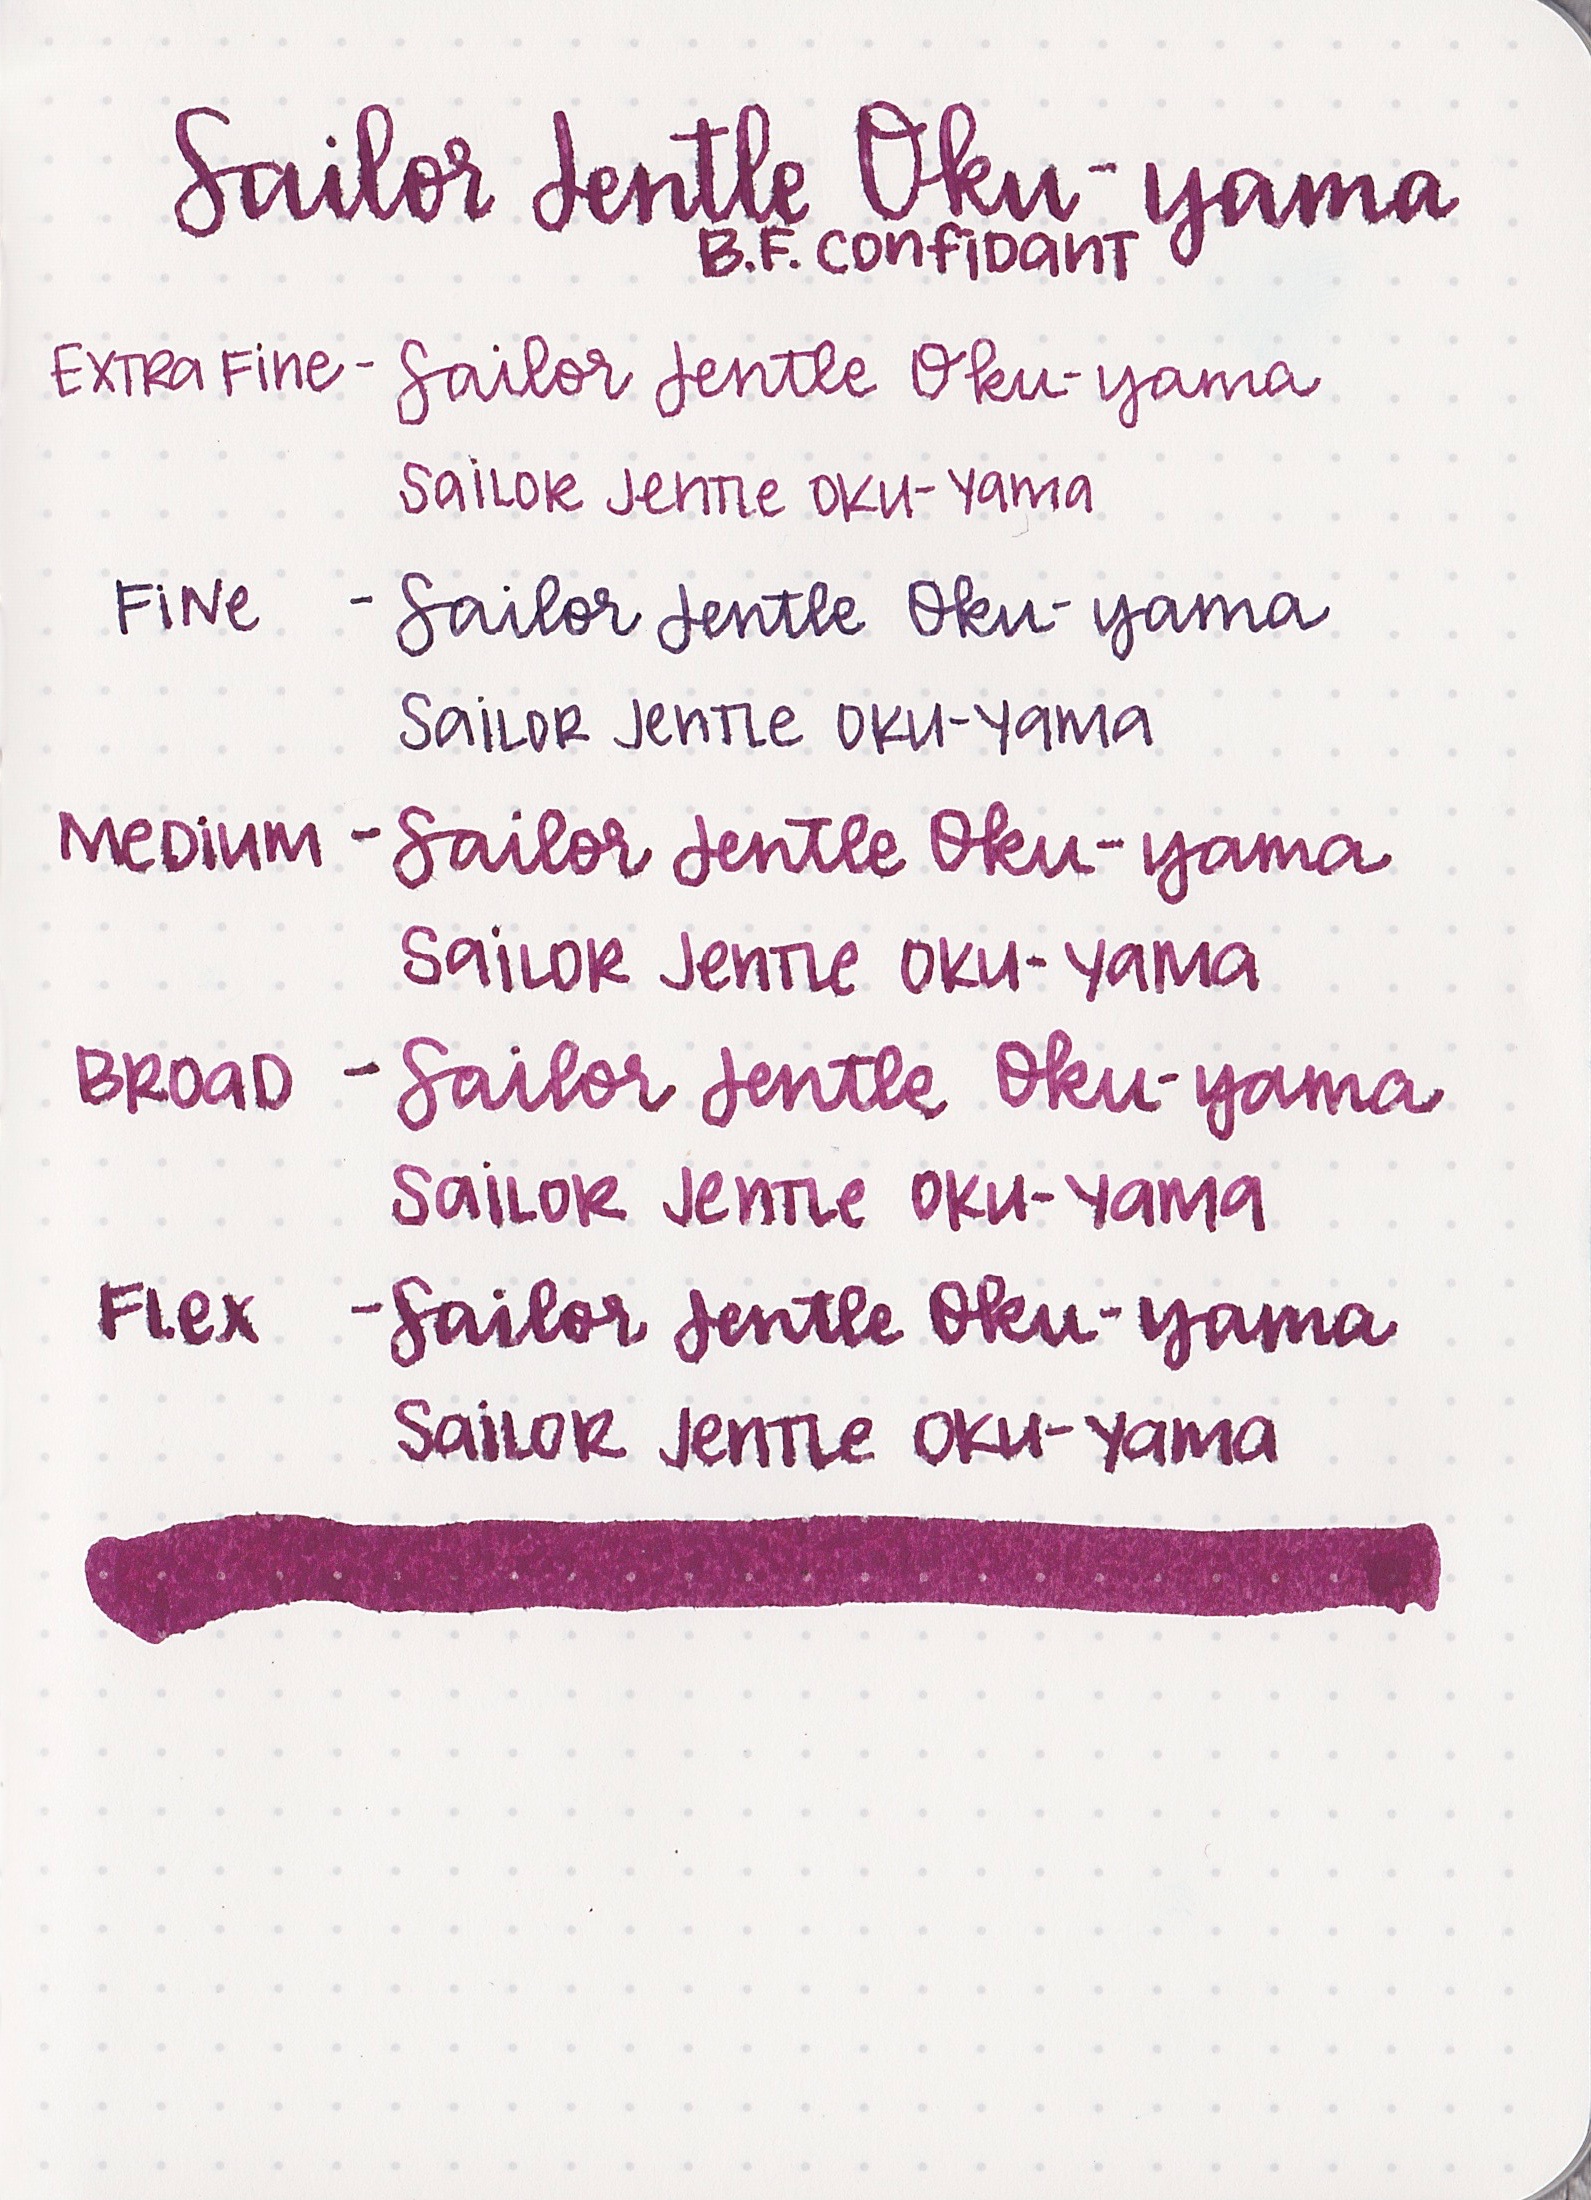 Sailor Jentle Oku-yama
B.F. Confidant
Extra Fine - Sailor Jentle Oku-yama
Sailor Jentle Oku-yama
Fine - Sailor Jentle Oku-yama
Sailor Jentle Oku-yama
Medium - Sailor Jentle Oku-yama
Sailor Jentle Oku-yama
Broad - Sailor Jentle Oku-yama
Sailor Jentle Oku-yama
Flex - Sailor Jentle Oku-yama
Sailor Jentle Oku-yama